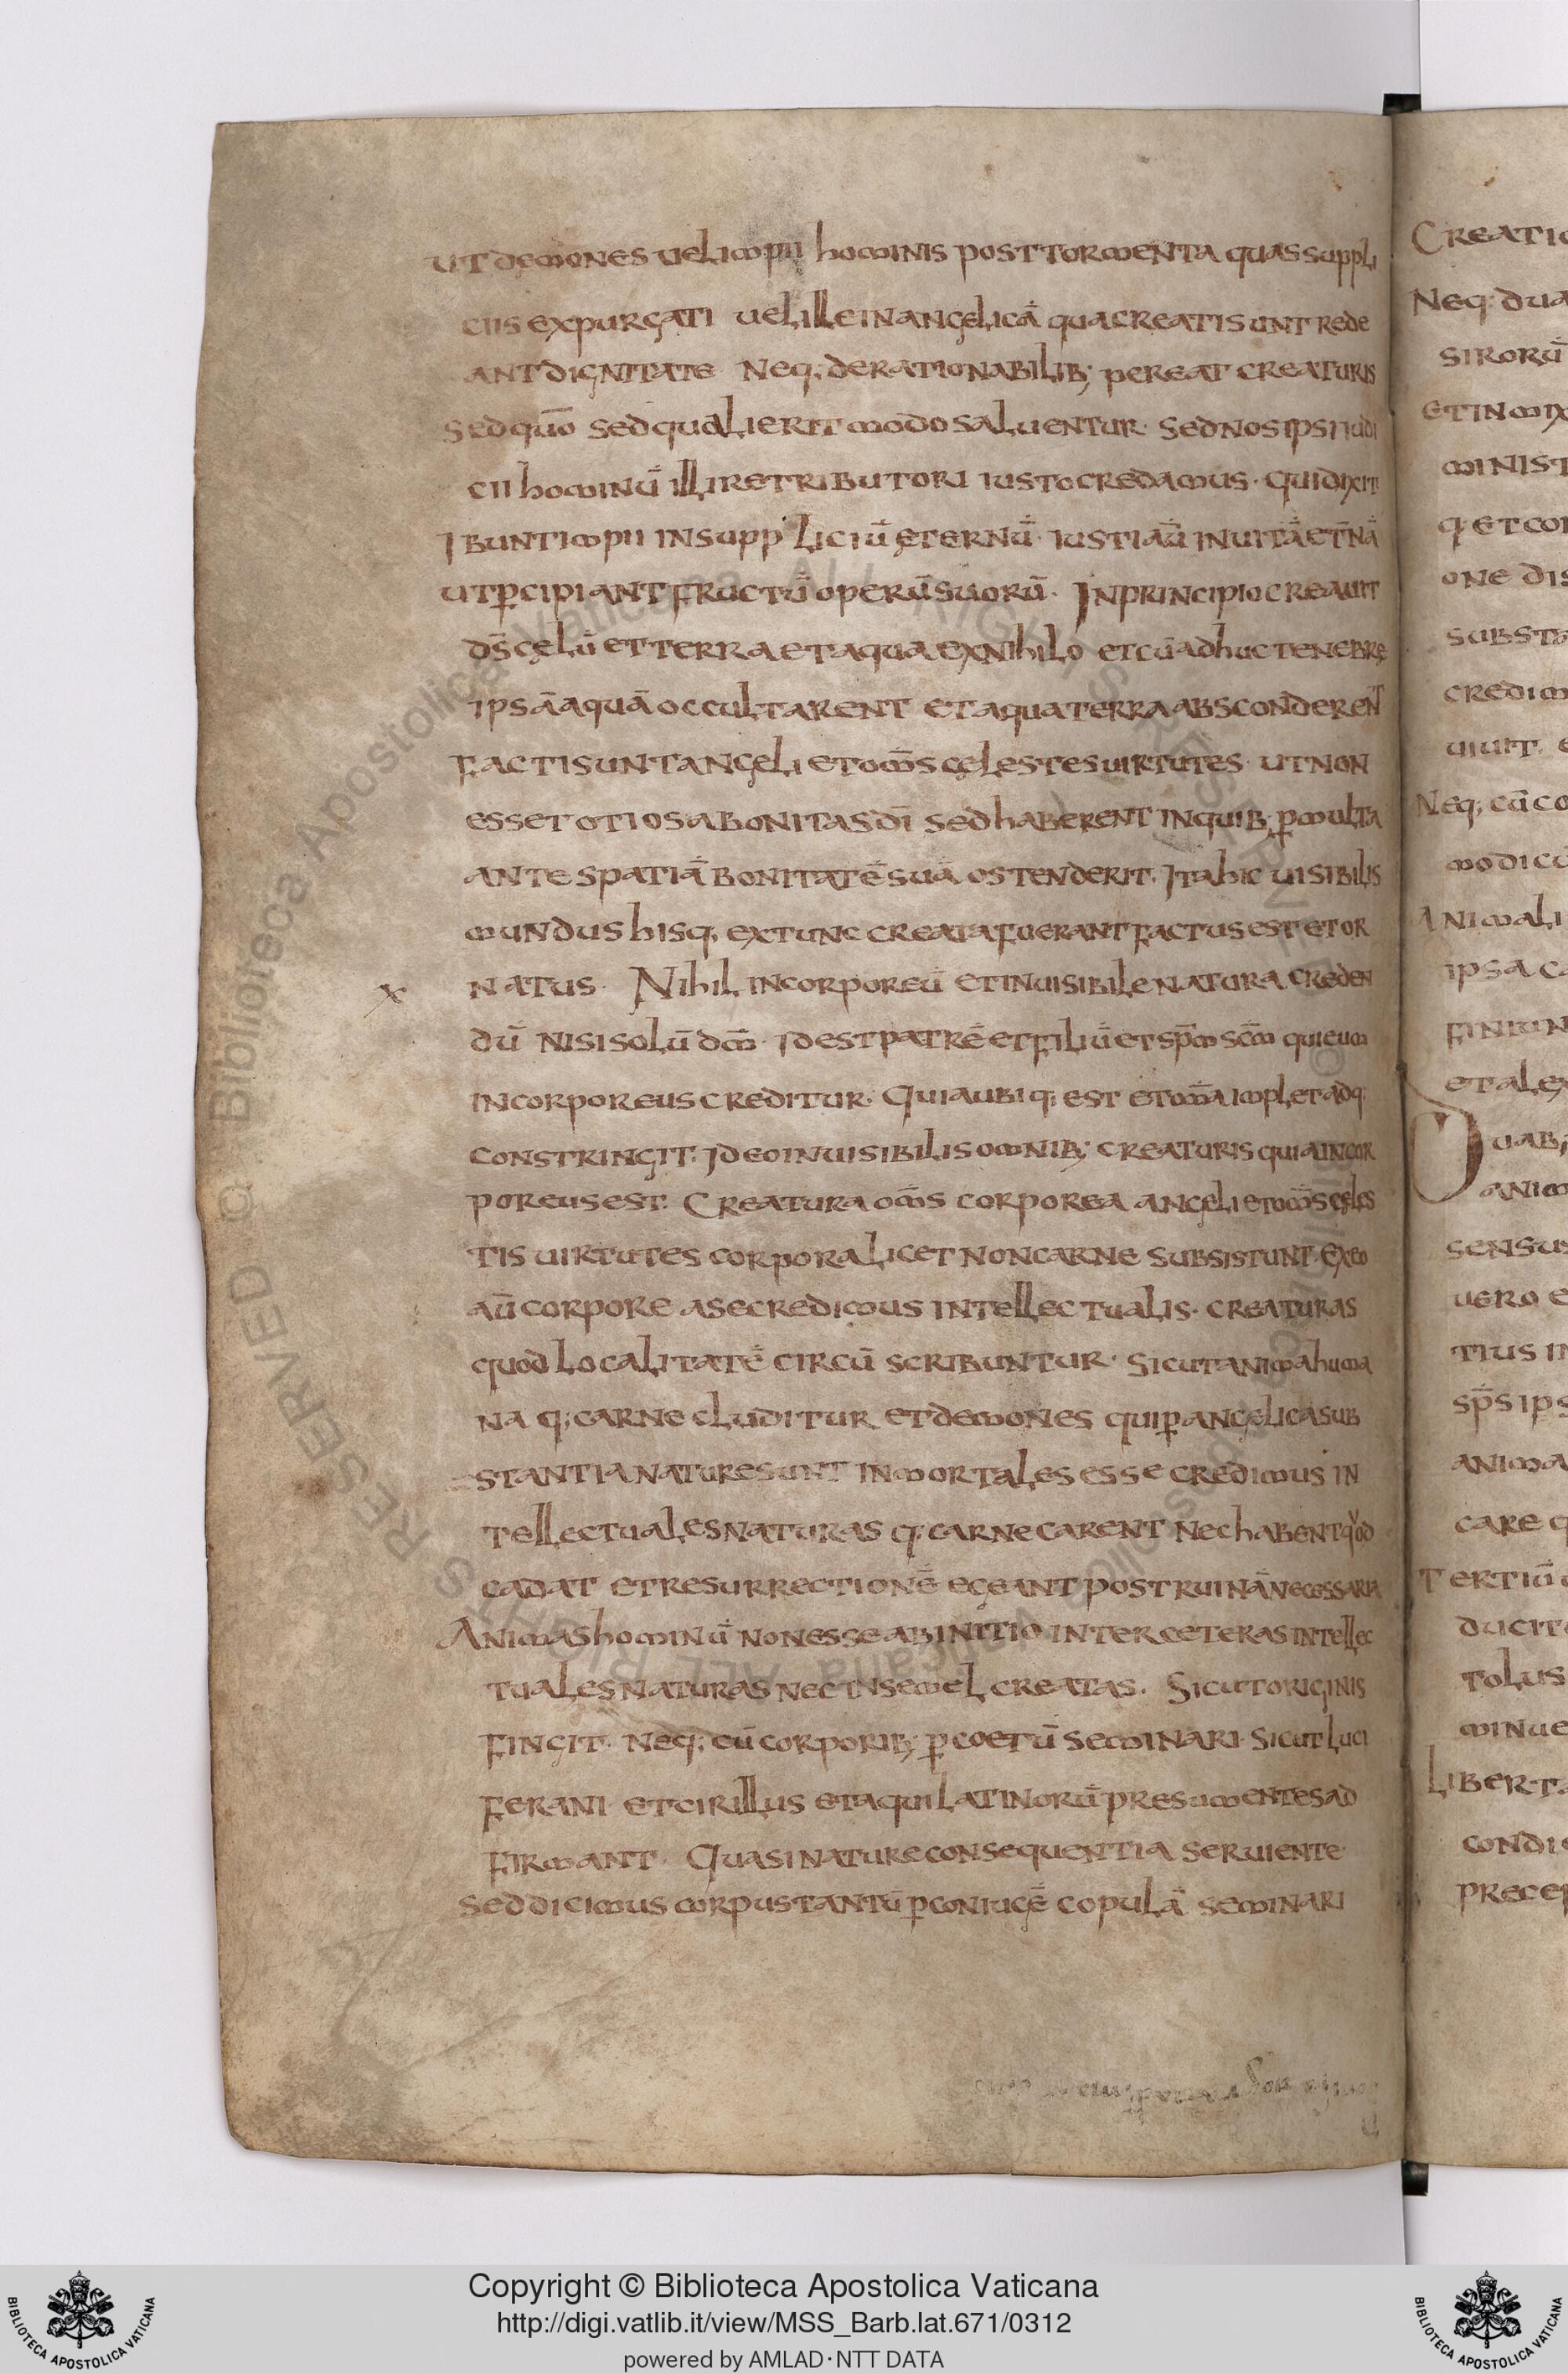 ut demones uel impii hominis post tormenta quas suppli
ciis expurgati uel ille in angelicā qua creati sunt rede
ant dignitate Neq; de rationabilib; pereat creaturis
sed quō sed quali erit modo saluentur · sed nos ipsi iudi
cii hominū illi retributori iusto credamus · qui dixit
Ibunt impii in suppliciū ęternū · iusti aū in uitā et̄nā
ut p̄cipiant fructū operū suorū · In principio creauit
dš cęlū et terra et aqua ex nihilo et cū adhuc tenebrę
ipsā aquā occultarent et aqua terra absconderent
facti sunt angeli et om̄s cęlestes uirtutes · ut non
esset otiosa bonitas dī sed haberent in quib; p̄ multa
ante spatiā bonitatē suā ostenderit · Ita hic uisibilis
mundus hisq; ex tunc creata fuerant factus est et or
x natus · Nihil incorporeū et inuisibile natura creden
dū nisi solū dm̄ · Id est patrē et filiū et sp̄m scm̄ qui eum
incorporeus creditur · Quia ubiq; est et om̄a implet adq;
constringit · Ideo inuisibilis omnib; creaturis quia incor
poreus est · Creatura om̄s corporea angeli et om̄s cęles
tis uirtutes corpora licet non carne subsistunt · Ex eo
aū corpore ase credimus intellectualis · creaturas
quod localitatē circū scribuntur · sicut anima huma
na q; carne cluditur et demones qui p̄ angelica sub
stantia nature sunt inmortales esse credimus in
tellectuales naturas q; carne carent nec habent quod
cadat et resurrectionē egeant post ruinā necessaria
Animas hominū non esse ab initio inter ceteras intellec
tuales naturas nec insemel creatas · Sicut originis
fingit · Neq; cū corporib; p̄ coetū seminari · sicut luci
ferani et cirillus et aqui latinorū presumentes ad
firmant · Quasi nature consequentia seruiente
sed dicimus corpus tantū p̄ coniugē copulā seminari
Creatio
Neq; dua
sirorū
et in mix
minist
q; et cor
one dis
substa
credim
uiuit · e
Neq; cū co
modicū
Animali
ipsa ca
finiun
et alex
uab;
anim
sensus
uero e
tius in
sp̄s ips
anima
care q
Tertiū
ducit
tolus
minue
Liberta
condic
precep
© Biblioteca Apostolica Vaticana ALL RIGHTS RESERVED
Copyright © Biblioteca Apostolica Vaticana
http://digi.vatlib.it/view/MSS_Barb.lat.671/0312
powered by AMLAD·NTT DATA
BIBLIOTECA APOSTOLICA VATICANA
BIBLIOTECA APOSTOLICA VATICANA